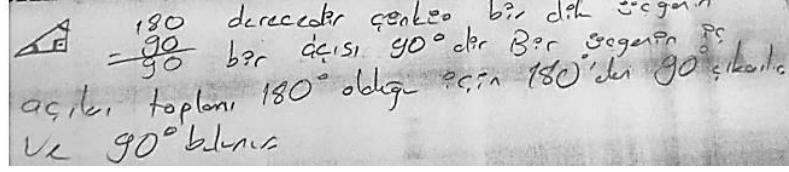 180 derecedir çünkü bir dik üçgenin
- 90 bir açısı 90° dir Bir üçgenin iç
90
açıları toplamı 180° olduğu için 180'den 90° çıkarılır
ve 90° bulunur